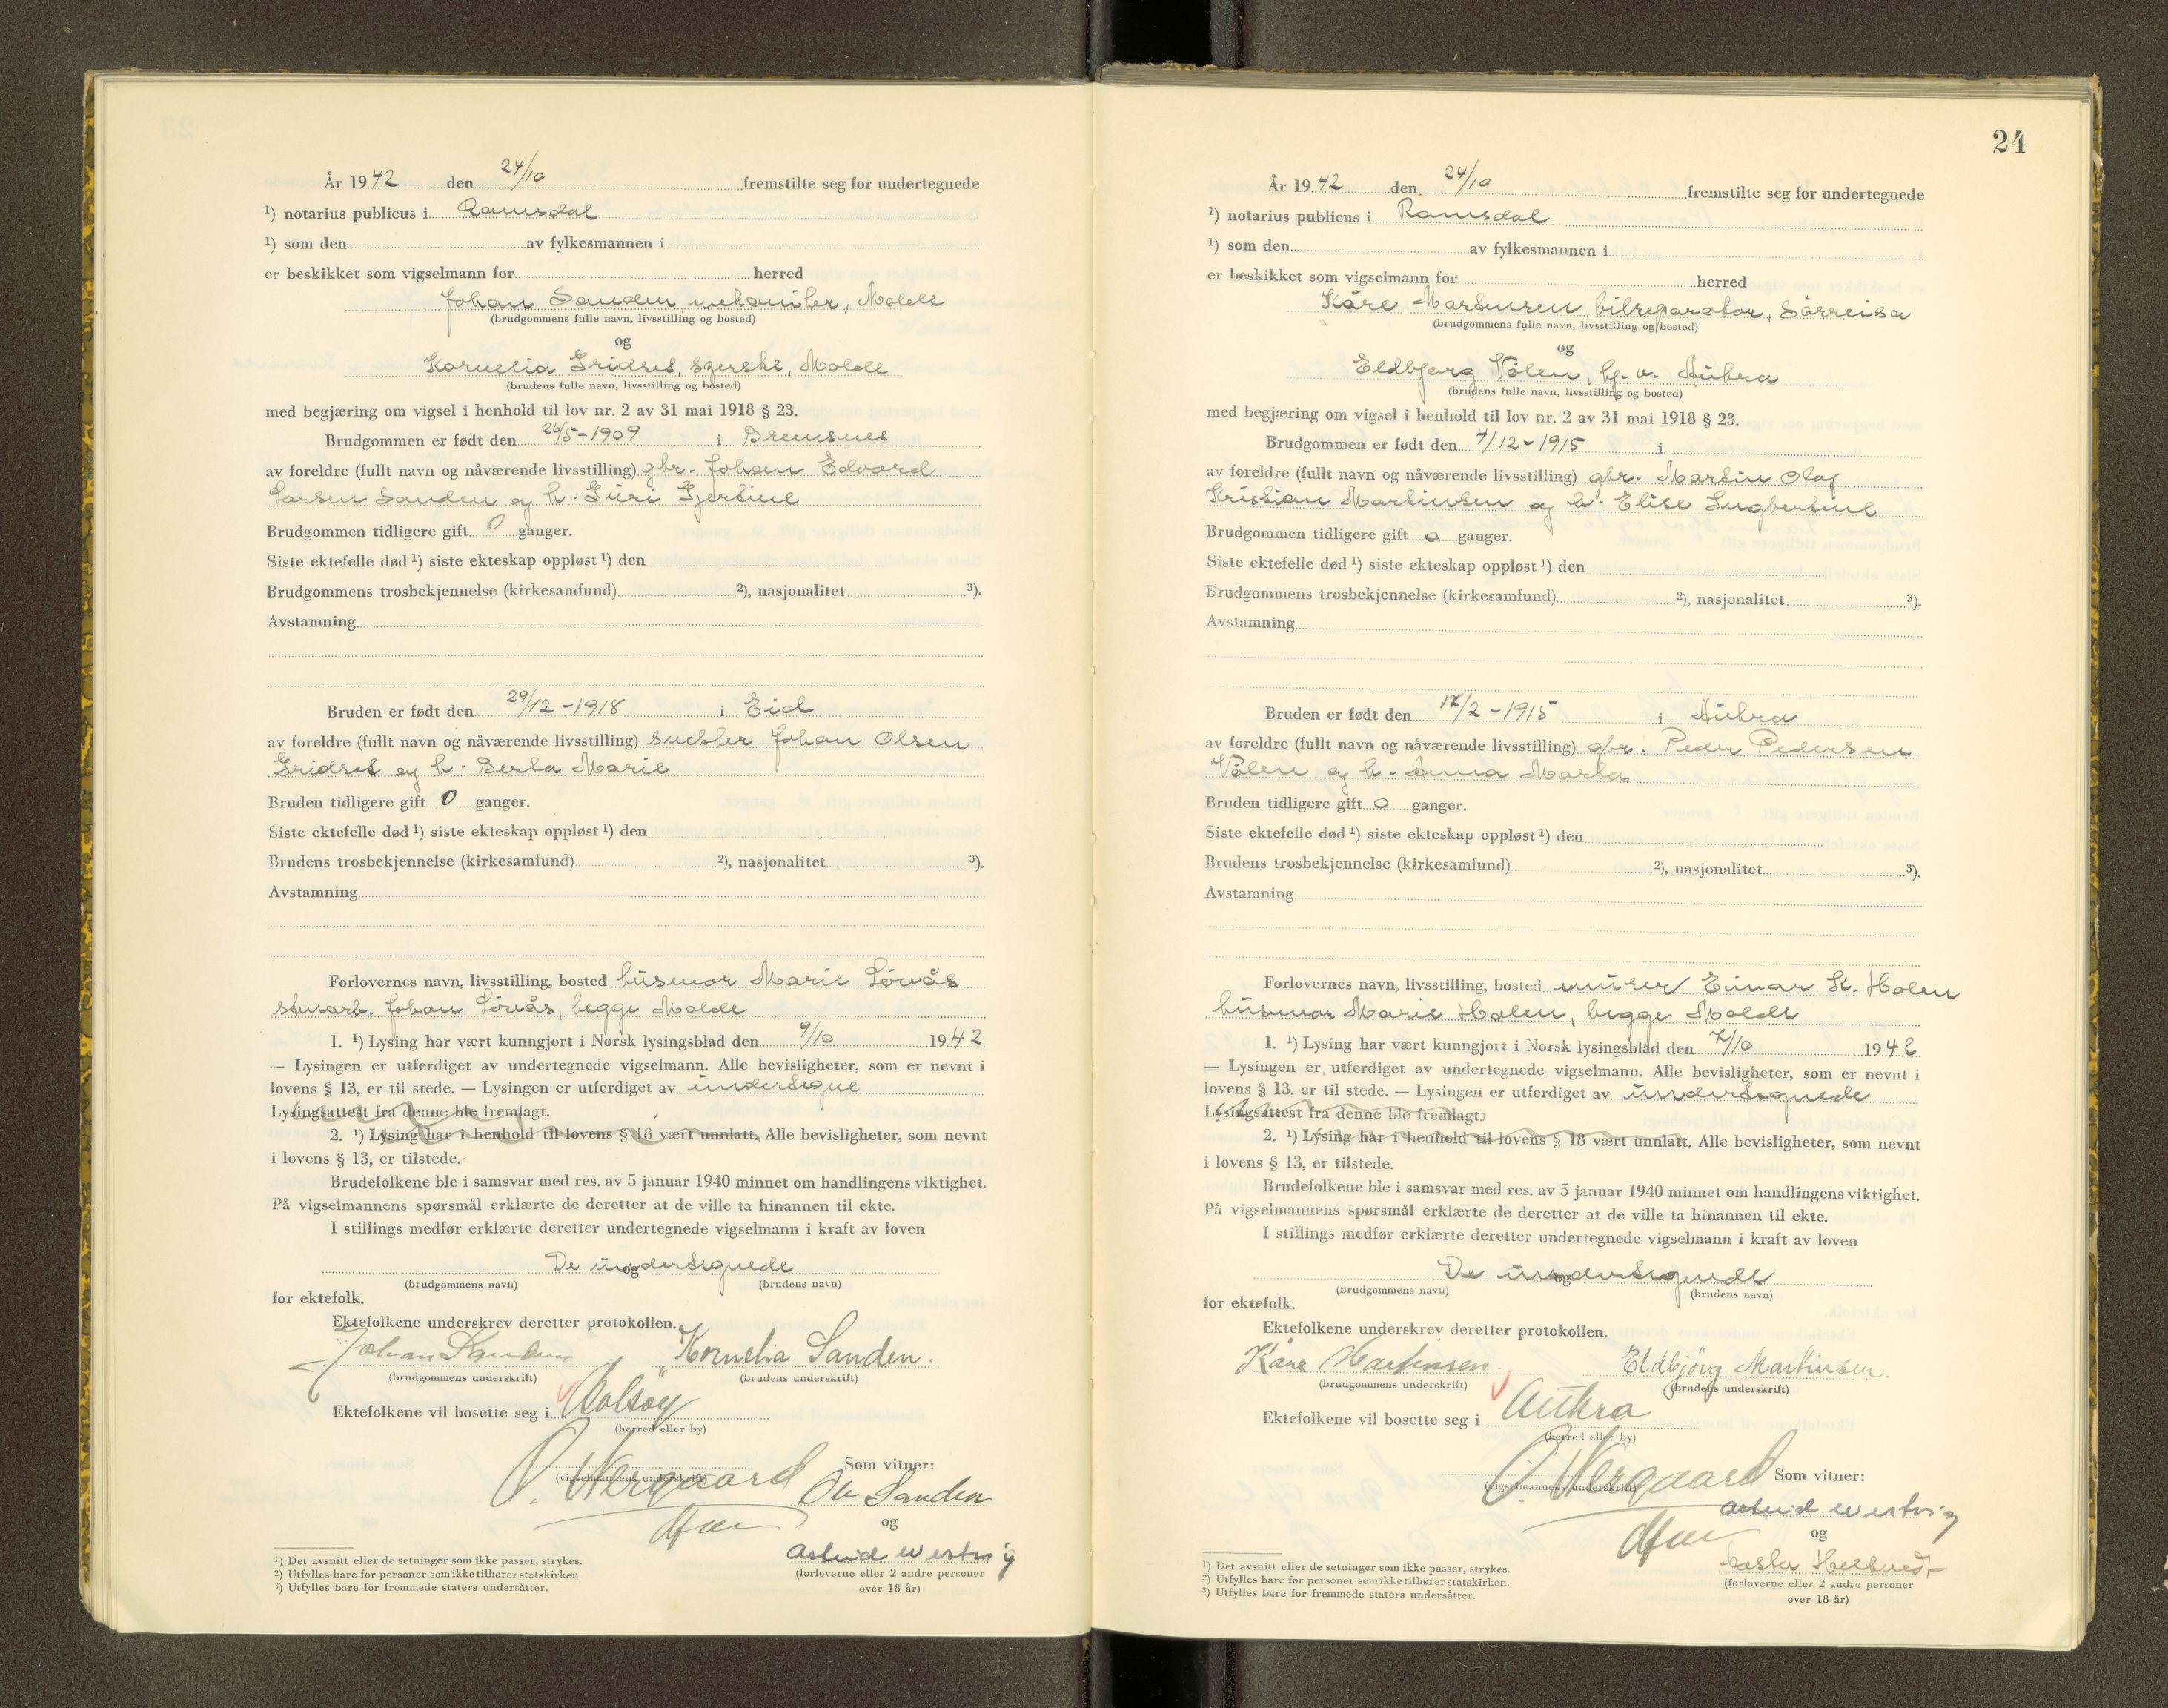 År 1942 den 24/10 fremstilte seg for undertegnede
¹) notarius publicus i Romsdal
¹) som den av fylkesmannen i
er beskikket som vigselmann for herred
Johan Sanden, mekaniker, Molde
(brudgommens fulle navn, livsstilling og bosted)
og
Kornelia Gridset, syerske, Molde
(brudens fulle navn, livsstilling og bosted)
med begjæring om vigsel i henhold til lov nr. 2 av 31 mai 1918 § 23.
Brudgommen er født den 26/5-1909 i Bremsnes
av foreldre (fullt navn og nåværende livsstilling) gbr. Johan Edvard
Larsen Sanden og h. Guri Gjertine
Brudgommen tidligere gift 0 ganger.
Siste ektefelle død ¹) siste ekteskap oppløst ¹) den
Brudgommens trosbekjennelse (kirkesamfund) ²), nasjonalitet ³).
Avstamning
Bruden er født den 29/12-1918 i Eid
av foreldre (fullt navn og nåværende livsstilling) snekker Johan Olsen
Gridset og h. Berta Marie
Bruden tidligere gift 0 ganger.
Siste ektefelle død ¹) siste ekteskap oppløst ¹) den
Brudens trosbekjennelse (kirkesamfund) ²), nasjonalitet ³).
Avstamning
Forlovernes navn, livsstilling, bosted husmor Marie Lønås
stenarb. Johan Lønås, begge Molde
1. ¹) Lysing har vært kunngjort i Norsk lysingsblad den 9/10 1942
— Lysingen er utferdiget av undertegnede vigselmann. Alle bevisligheter, som er nevnt i
lovens § 13, er til stede. — Lysingen er utferdiget av undertegne
Lysingsattest fra denne ble fremlagt.
2. ¹) Lysing har i henhold til lovens § 18 vært unnlatt. Alle bevisligheter, som nevnt
i lovens § 13, er tilstede.
Brudefolkene ble i samsvar med res. av 5 januar 1940 minnet om handlingens viktighet.
På vigselmannens spørsmål erklærte de deretter at de ville ta hinannen til ekte.
I stillings medfør erklærte deretter undertegnede vigselmann i kraft av loven
De undertegnede
og
(brudgommens navn) (brudens navn)
for ektefolk.
Ektefolkene underskrev deretter protokollen.
Johan Sanden Kornelia Sanden.
(brudgommens underskrift) (brudens underskrift)
Ektefolkene vil bosette seg i Bolsøy
(herred eller by)
O. Wergaard Som vitner:
(vigselmannens underskrift)
Ola Sanden
og
Astrid Westvig
(forloverne eller 2 andre personer
over 18 år)
¹) Det avsnitt eller de setninger som ikke passer, strykes.
²) Utfylles bare for personer som ikke tilhører statskirken.
³) Utfylles bare for fremmede staters undersåtter.
24
År 1942 den 24/10 fremstilte seg for undertegnede
¹) notarius publicus i Romsdal
¹) som den av fylkesmannen i
er beskikket som vigselmann for herred
Kåre Martinsen, bilreparatør, Sørreisa
(brudgommens fulle navn, livsstilling og bosted)
og
Eldbjørg Vålen, hj. v. Aukra
(brudens fulle navn, livsstilling og bosted)
med begjæring om vigsel i henhold til lov nr. 2 av 31 mai 1918 § 23.
Brudgommen er født den 4/12-1915 i
av foreldre (fullt navn og nåværende livsstilling) gbr. Martin Olaf
Kristian Martinsen og h. Elise Ingbertine
Brudgommen tidligere gift 0 ganger.
Siste ektefelle død ¹) siste ekteskap oppløst ¹) den
Brudgommens trosbekjennelse (kirkesamfund) ²), nasjonalitet ³).
Avstamning
Bruden er født den 12/2-1915 i Aukra
av foreldre (fullt navn og nåværende livsstilling) gbr. Peder Pedersen
Vålen og h. Anna Marta
Bruden tidligere gift 0 ganger.
Siste ektefelle død ¹) siste ekteskap oppløst ¹) den
Brudens trosbekjennelse (kirkesamfund) ²), nasjonalitet ³).
Avstamning
Forlovernes navn, livsstilling, bosted murer Einar K. Holen
husmor Marie Holen, begge Molde
1. ¹) Lysing har vært kunngjort i Norsk lysingsblad den 7/10 1942
— Lysingen er utferdiget av undertegnede vigselmann. Alle bevisligheter, som er nevnt i
lovens § 13, er til stede. — Lysingen er utferdiget av undertegnede
Lysingsattest fra denne ble fremlagt.
2. ¹) Lysing har i henhold til lovens § 18 vært unnlatt. Alle bevisligheter, som nevnt
i lovens § 13, er tilstede.
Brudefolkene ble i samsvar med res. av 5 januar 1940 minnet om handlingens viktighet.
På vigselmannens spørsmål erklærte de deretter at de ville ta hinannen til ekte.
I stillings medfør erklærte deretter undertegnede vigselmann i kraft av loven
De undertegnede
og
(brudgommens navn) (brudens navn)
for ektefolk.
Ektefolkene underskrev deretter protokollen.
Kåre Martinsen. Eldbjörg Martinsen.
(brudgommens underskrift) (brudens underskrift)
Ektefolkene vil bosette seg i Aukra
(herred eller by)
O. Wergaard Som vitner:
(vigselmannens underskrift)
Astrid Westvig
og
(forloverne eller 2 andre personer
over 18 år)
¹) Det avsnitt eller de setninger som ikke passer, strykes.
²) Utfylles bare for personer som ikke tilhører statskirken.
³) Utfylles bare for fremmede staters undersåtter.